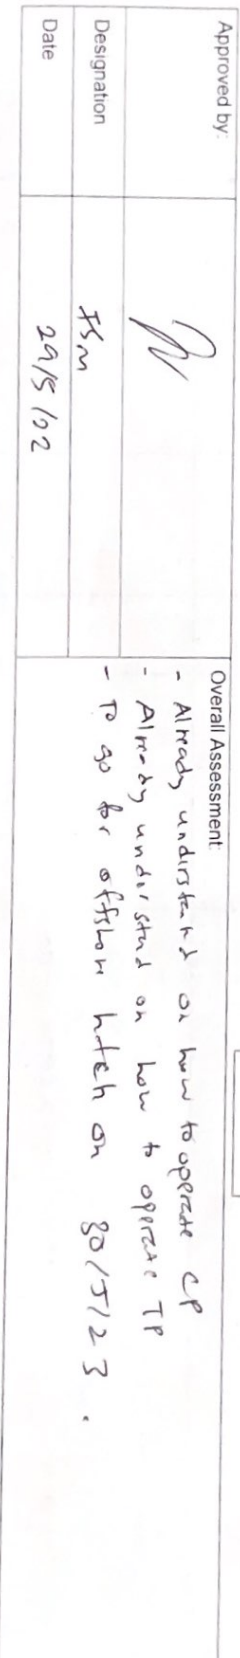 Approved by:
Designation FSM
Date 29/5/22
Overall Assessment:
- Already understand on how to operate CP
- Already understand on how to operate TP
- To go for offshore hitch on 30/5/23.